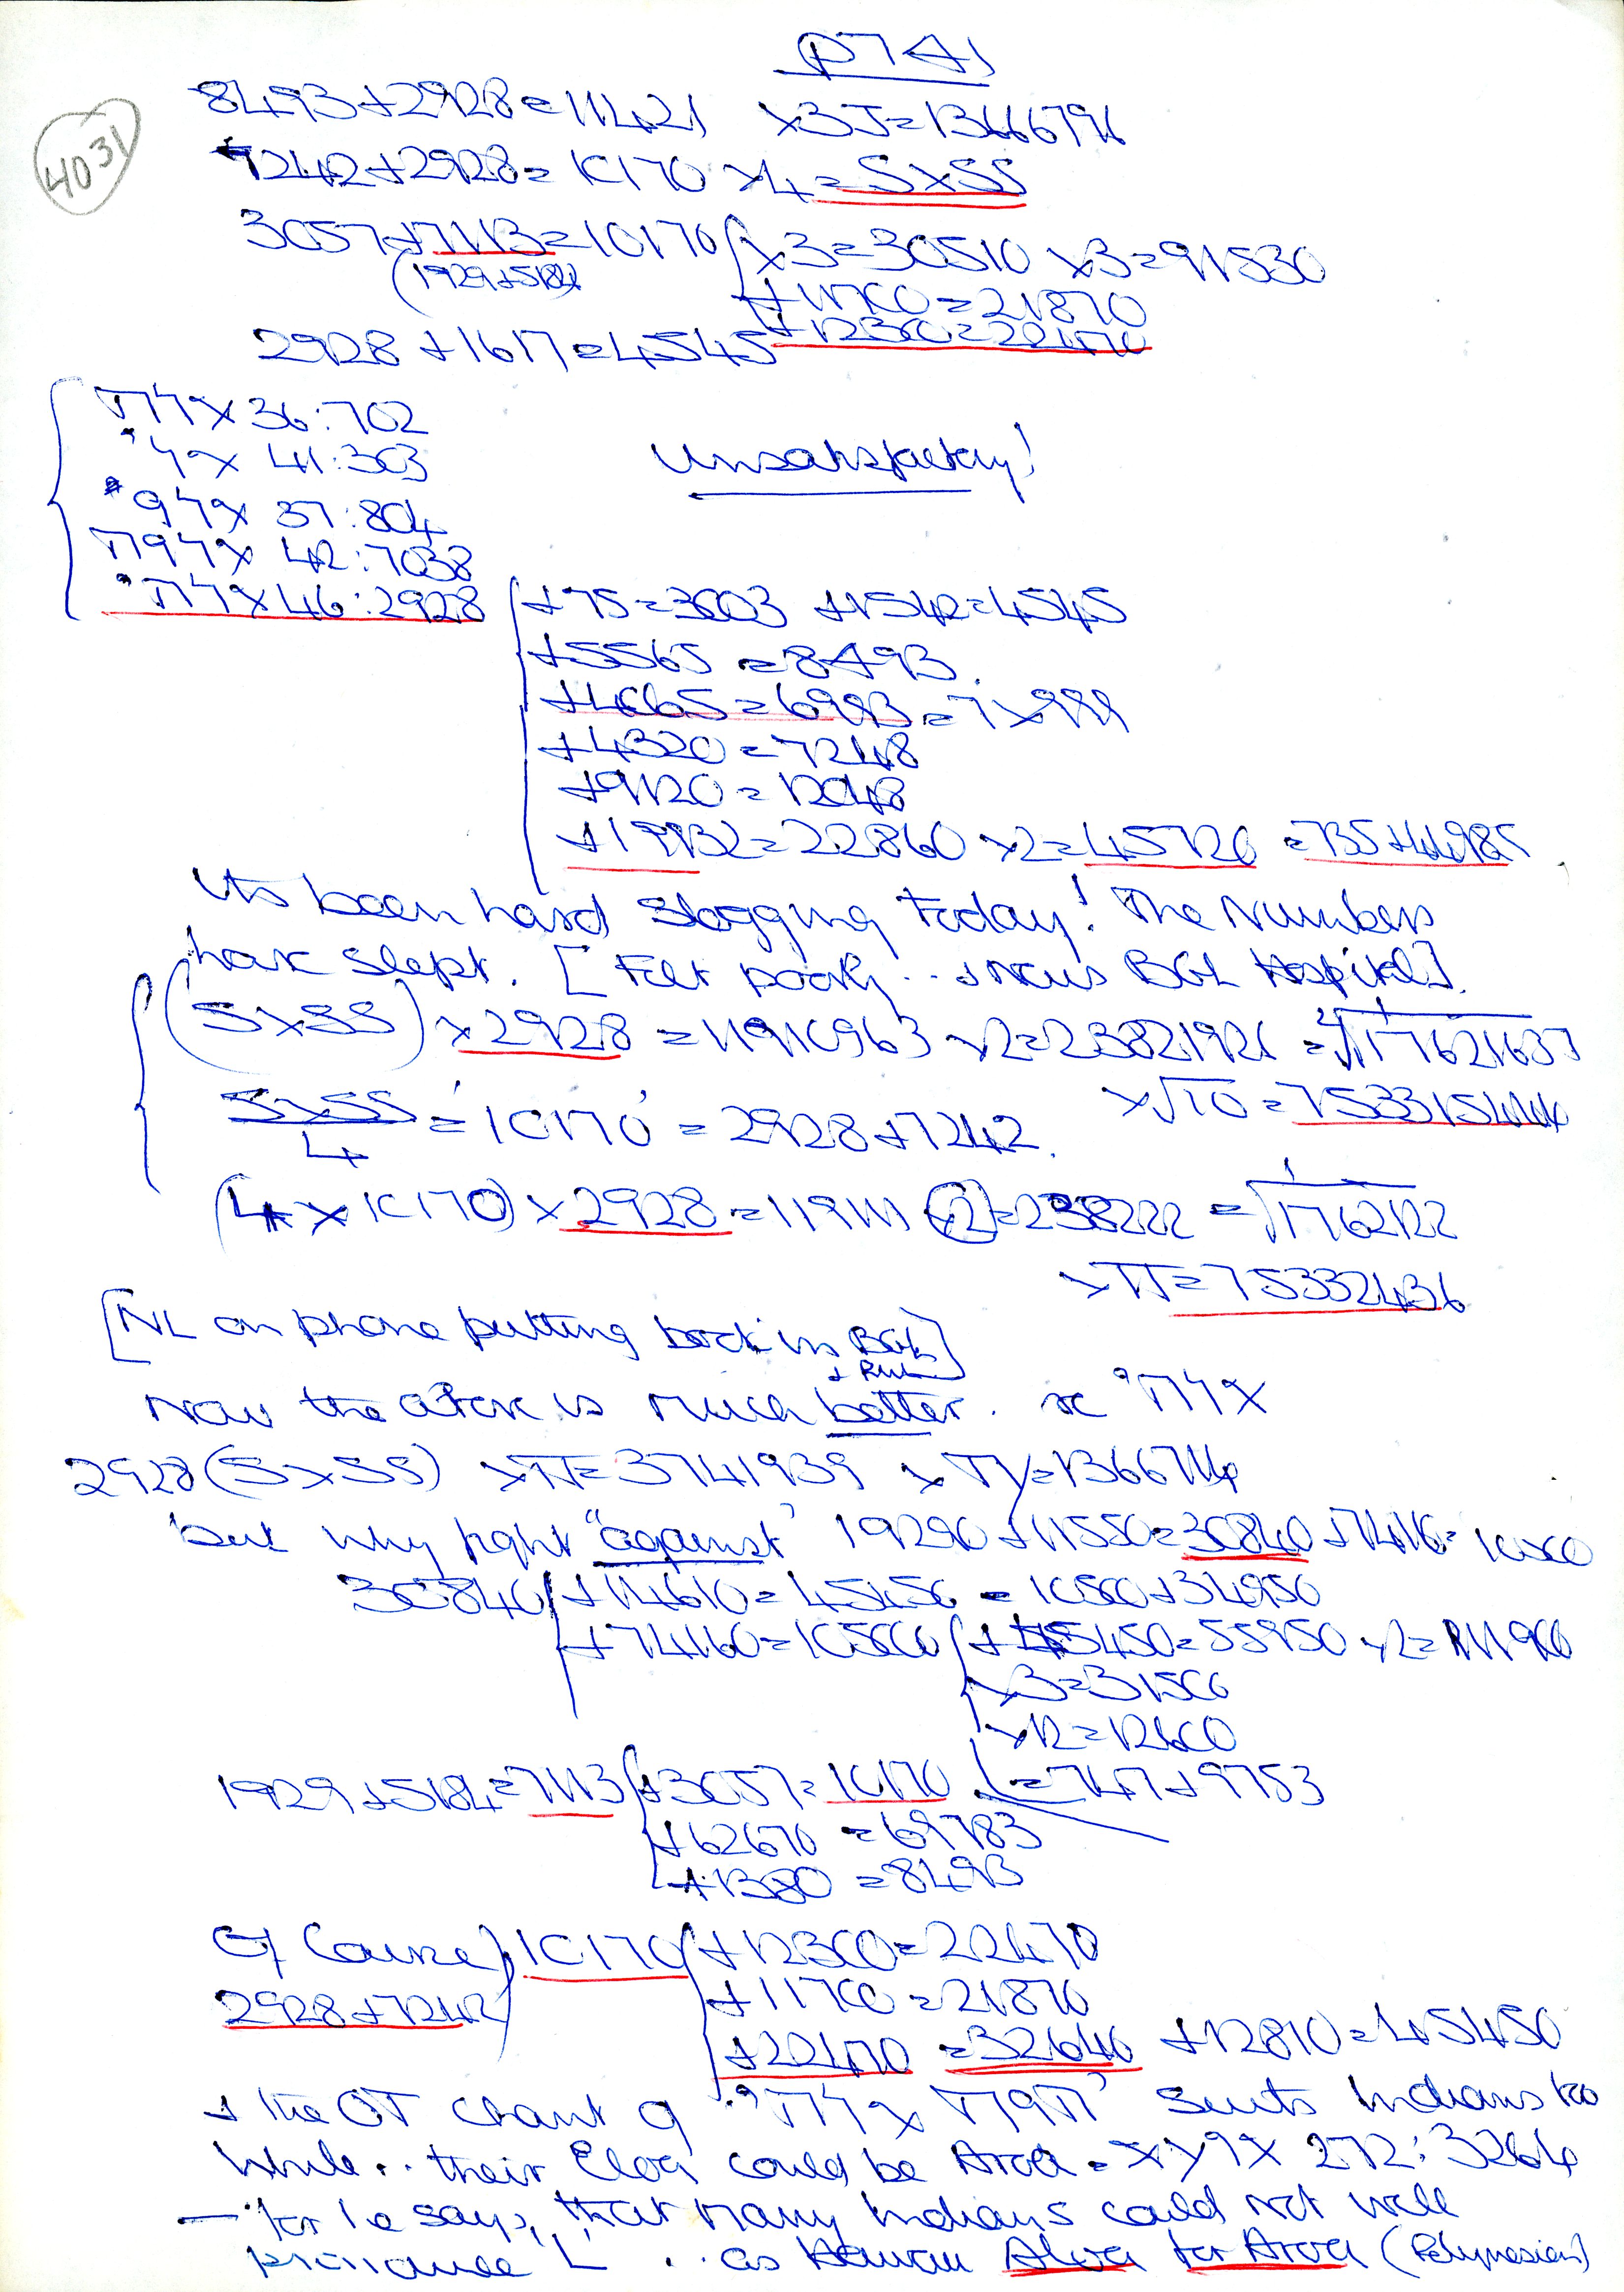 p741
4031
8493+2928=11421 ×3J=1366796
7242+2928=10170 ×4=S×SS
3057+7113=10170 ×3=30510 ×3=91530
(1929+5184) +11700=21870
2928+1617=4545 +12300=22470
36:702
41:303
Unsatisfactory!
37:804
42:7038
46:2928 +75=3003 +1542=4545
+5565=8493
+4065=6993=7×999
+4320=7248
+9120=12048
+19932=22860 ×2=45720 =735+44985
Its been hard slogging today! The Numbers
have slept. [Felt poorly ... + News BGL Hospital]
(S×SS)×2928=11910963 ×2=23821926 =√17621637
S×SS/4='10170'=2928+7242. ×√10=753315444
(4×10170)×2928=119111 ×2=238222 =√1762122
×π=75332436
[NL on phone putting back in BGL
+ Ruth]
Now the is much better.
2928(S×SS) ×π=3741939 ×TY=1366714
but why fight "against" 19290+11550=30840+7416=
30840 +14610=45450=10500+34950
+74160=105000 +45450=55950 ×2=111900
×3=31500
×12=12600
1929+5184=7113 +3057=10170 =747+9753
+62670=69783
+1380=8493
Of Course) 10170 +12300=22470
2928+7242 +11700=21870
+22470=32640 +12810=45450
+ the OT chant of suits Indians too
While .. their Eloa could be Aroa = 272:3264
— for he says, that many Indians could not well
pronounce 'L' .. as Hawaii Aloa for Aroa (Polynesian)